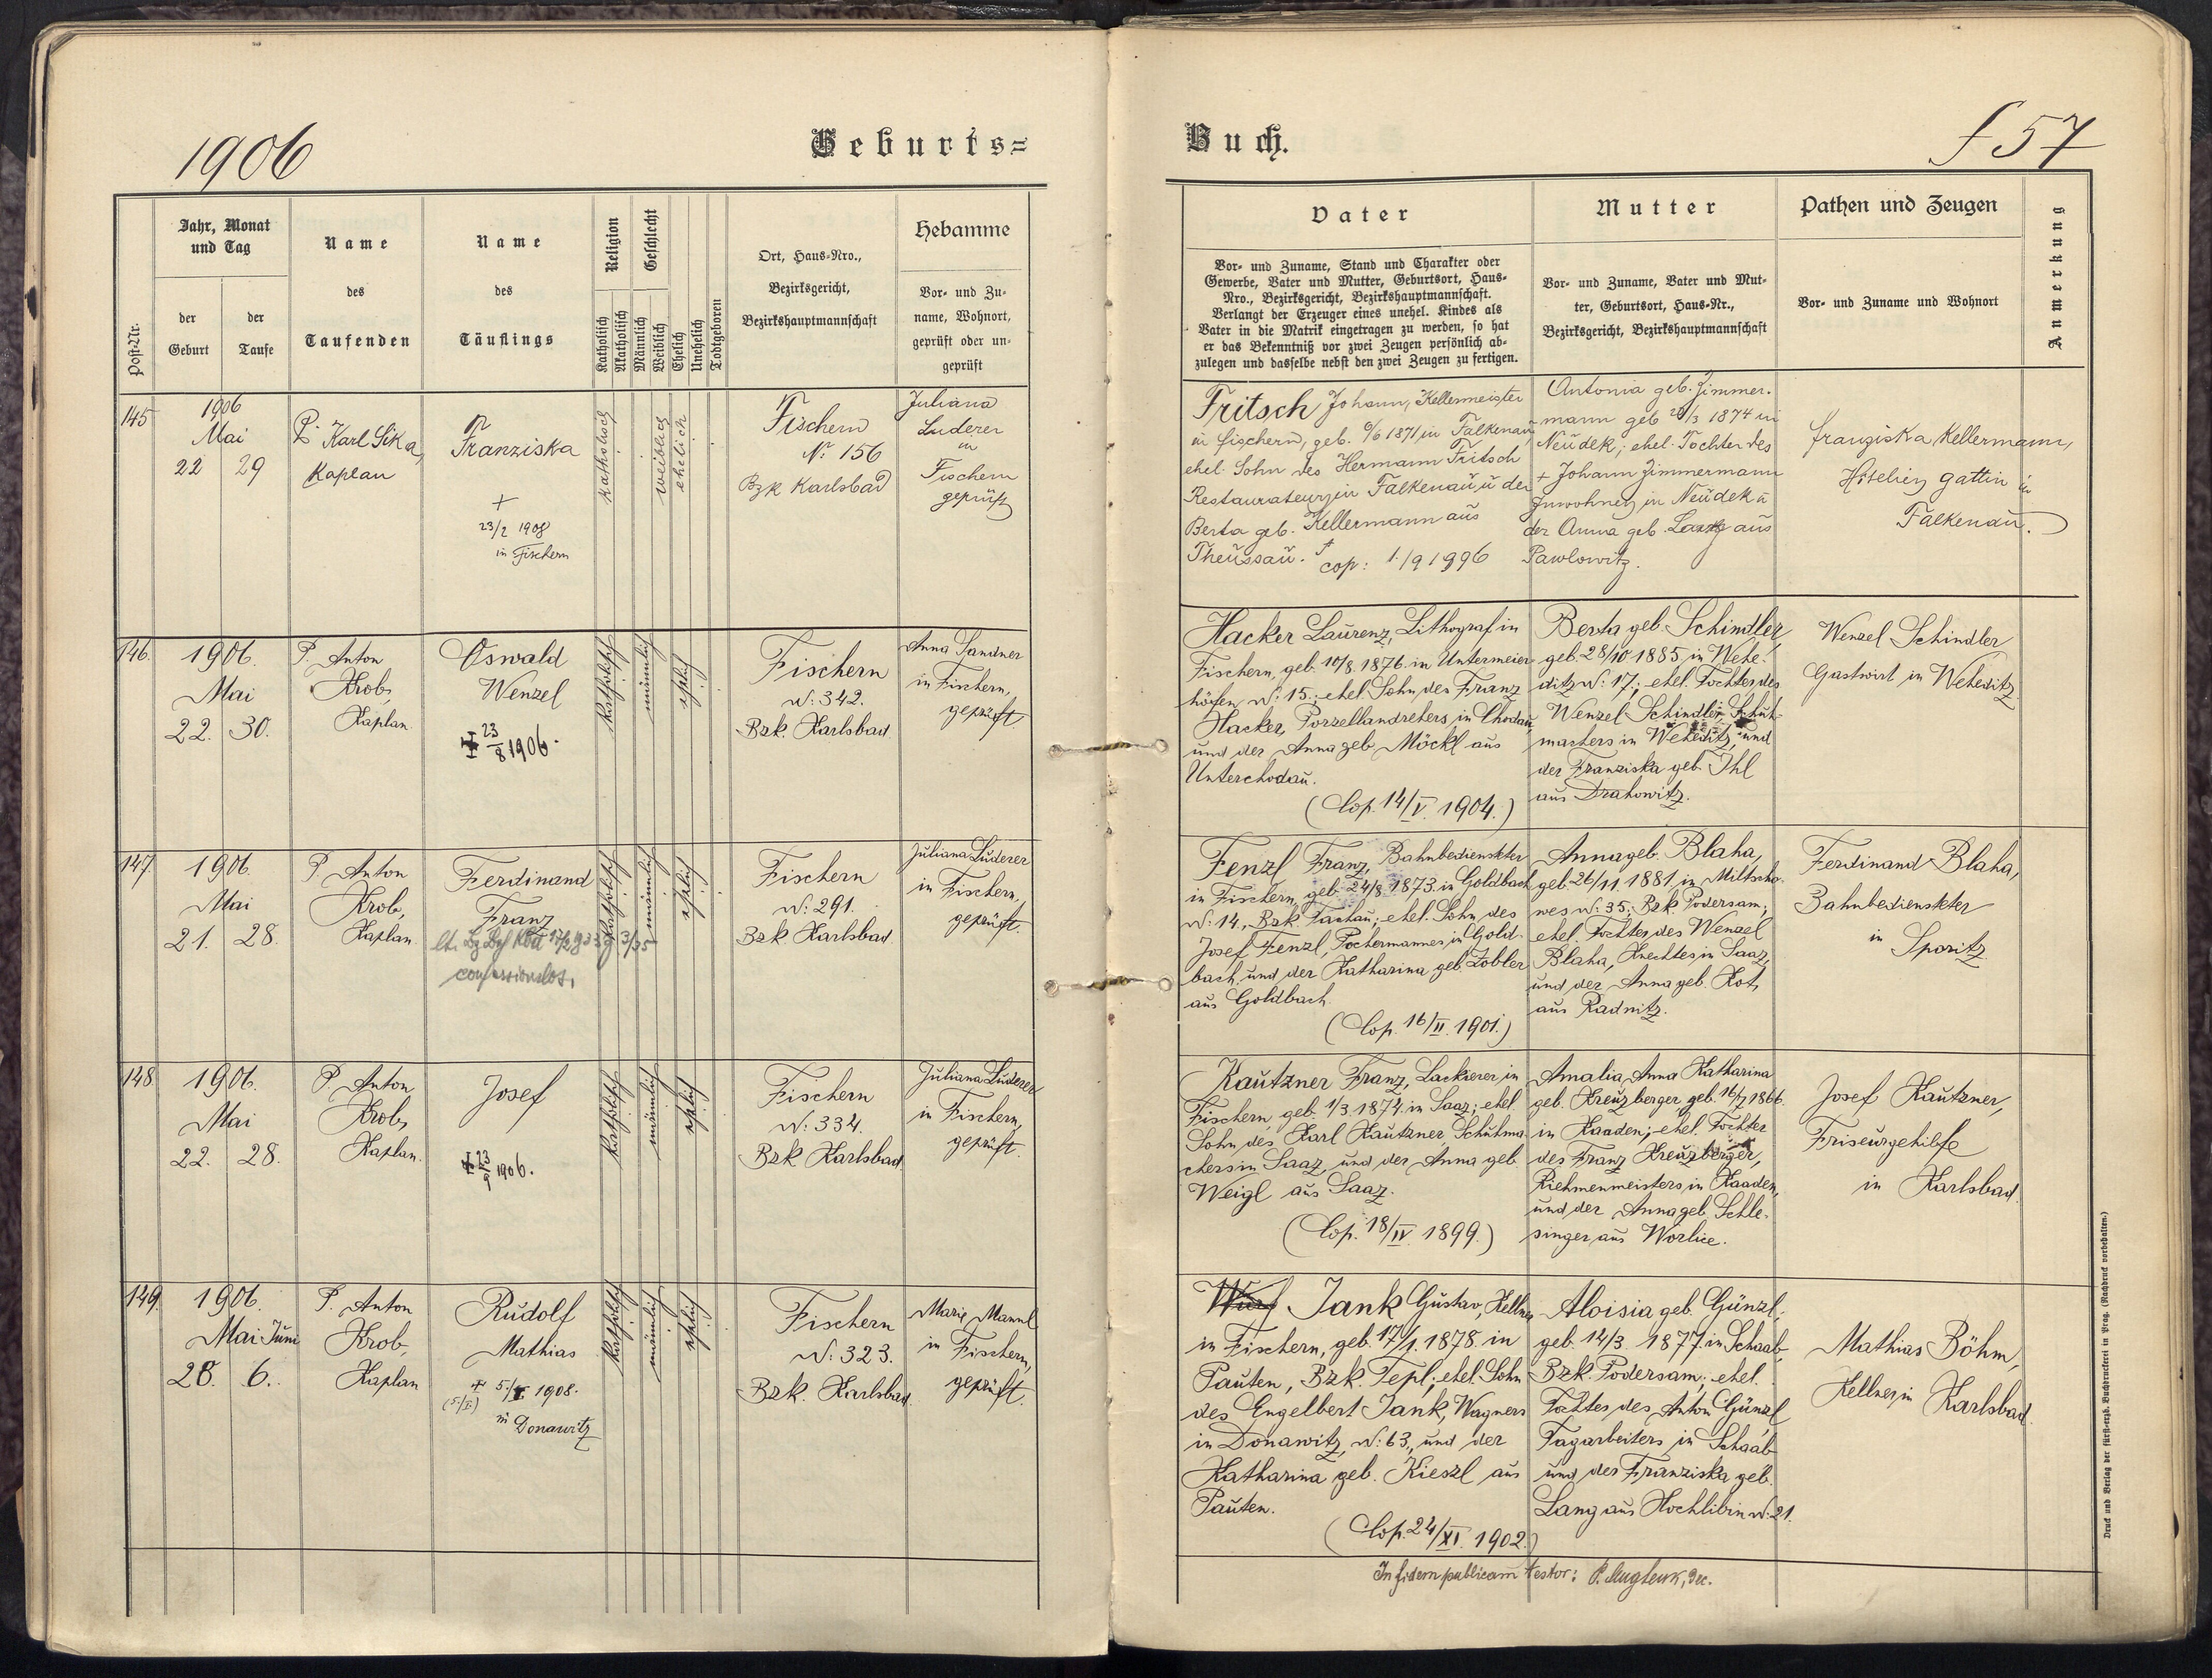 1906
Geburts=
Post-Nr.
Jahr, Monat
und Tag
der
Geburt
der
Taufe
Name
des
Taufenden
Name
des
Täuflings
Religion
Katholisch
Akatholisch
Geschlecht
Männlich
Weiblich
Ehelich
Unehelich
Todtgeboren
Ort, Haus-Nro.,
Bezirksgericht,
Bezirkshauptmannschaft
Hebamme
Vor- und Zu-
name, Wohnort,
geprüft oder un-
geprüft
145
1906
Mai
22 29
P. Karl Sika,
Kaplan
Franziska
+
23/2 1908
in Fischern
katholisch
weiblich
ehelich
Fischern
N: 156
Bzk Karlsbad
Juliana
Luderer
in
Fischern
geprüft
146.
1906.
Mai
22. 30.
P. Anton
Krob,
Kaplan.
Oswald
Wenzel
+ 23/8 1906.
katholisch
männlich
ehelich
Fischern
N: 342.
Bzk. Karlsbad.
Anna Sandner
in Fischern,
geprüft.
147.
1906.
Mai
21. 28.
P. Anton
Krob,
Kaplan.
Ferdinand
Franz
confessionslos.
katholisch
männlich
ehelich
Fischern
N: 291.
Bzk Karlsbad
Juliana Luderer
in Fischern,
geprüft.
148.
1906.
Mai
22. 28.
P. Anton
Krob,
Kaplan.
Josef
+ 23/9 1906.
katholisch
männlich
ehelich
Fischern
N: 334.
Bzk Karlsbad
Juliana Luderer
in Fischern,
geprüft.
149.
1906.
Mai Juni
28. 6.
P. Anton
Krob,
Kaplan
Rudolf
Mathias
+ 5./I. 1908.
(5./I.)
in Donawitz
katholisch
männlich
ehelich
Fischern
N: 323.
Bzk. Karlsbad.
Marie Mannl
in Fischern,
geprüft.
Buch.
f 57
Vater
Vor- und Zuname, Stand und Charakter oder
Gewerbe, Vater und Mutter, Geburtsort, Haus-
Nro., Bezirksgericht, Bezirkshauptmannschaft.
Verlangt der Erzeuger eines unehel. Kindes als
Vater in die Matrik eingetragen zu werden, so hat
er das Bekenntniß vor zwei Zeugen persönlich ab-
zulegen und dasselbe nebst den zwei Zeugen zu fertigen.
Mutter
Vor- und Zuname, Vater und Mut-
ter, Geburtsort, Haus-Nr.,
Bezirksgericht, Bezirkshauptmannschaft
Pathen und Zeugen
Vor- und Zuname und Wohnort
Anmerkung
Fritsch Johann, Kellermeister
in Fischern, geb. 6/6 1871 in Falkenau,
ehel. Sohn des Hermann Fritsch
Restaurateurs in Falkenau u der
Berta geb. Kellermann aus
Theussau. cop: 1./9 1896
Antonia geb. Zimmer-
mann geb 1874 in
Neudek; ehel. Tochter des
+ Johann Zimmermann
Inwohners in Neudek u
der Anna geb. aus
Pawlowitz.
Franziska Kellermann,
gattin in
Falkenau.
Hacker Laurenz, Lithograf in
Fischern, geb. 10/8. 1876. in Untermeier-
höfen N: 15.; ehel. Sohn des Franz
Hacker, Porzellandrehers in Chodau,
und der Anna geb. Möckl aus
Unterchodau.
(Cop. 14/V. 1904.)
Berta geb. Schindler,
geb. 28/10 1885 in Wehe-
ditz N: 17.; ehel. Tochter des
Wenzel Schindler, Schuh-
machers in Weheditz, und
der Franziska geb. Ihl
aus Drahowitz.
Wenzel Schindler,
Gastwirt in Weheditz.
Fenzl Franz, Bahnbediensteter
in Fischern, geb. 24/8. 1873. in Goldbach
N: 14., Bzk. Tachau; ehel. Sohn des
Josef Fenzl, Pochermannes in Gold-
bach und der Katharina geb. Zobler
aus Goldbach.
(Cop. 16/II. 1901.)
Anna geb. Blaha,
geb. 26/11. 1881. in Miltscho-
wes N: 35; Bzk. Podersam;
ehel. Tochter des Wenzel
Blaha, Knechtes in Saaz,
und der Anna geb. Kot,
aus Radnitz.
Ferdinand Blaha,
Bahnbediensteter
in Sporitz.
Kautzner Franz, Lackierer in
Fischern, geb. 1/3. 1874. in Saaz; ehel.
Sohn des Karl Kautzner, Schuhma-
chers in Saaz, und der Anna geb.
Weigl aus Saaz.
(Cop. 18/IV 1899.)
Amalia Anna Katharina
geb. Kreuzberger, geb. 16/7 1866.
in Kaaden; ehel. Tochter
des Franz Kreuzberger,
Riehmenmeisters in Kaaden,
und der Anna geb. Schle-
singer aus Worlice.
Josef Kautzner,
Friseurgehilfe
in Karlsbad.
Jank Gustav, Kellner
in Fischern, geb. 17/1. 1878. in
Pauten, Bzk. Tepl; ehel. Sohn
des Engelbert Jank, Wagners
in Donawitz, N: 63., und der
Katharina geb. Kieszl aus
Pauten.
(Cop. 24/XI. 1902.)
Aloisia geb. Günzl,
geb. 14/3. 1877. in Schaab,
Bzk. Podersam; ehel.
Tochter des Anton Günzl
Tagarbeiters in Schaab
und der Franziska geb.
Lang aus Hochlibin N: 21.
Mathias Böhm,
Kellner in Karlsbad.
In fidem publicam testor: P.
Druck und Verlag der fürst-erzb. Buchdruckerei in Prag. (Nachdruck vorbehalten.)